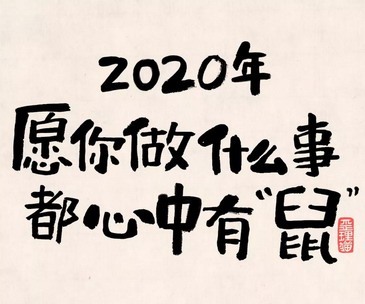 2020年
愿你做什么事
都心中有“鼠”